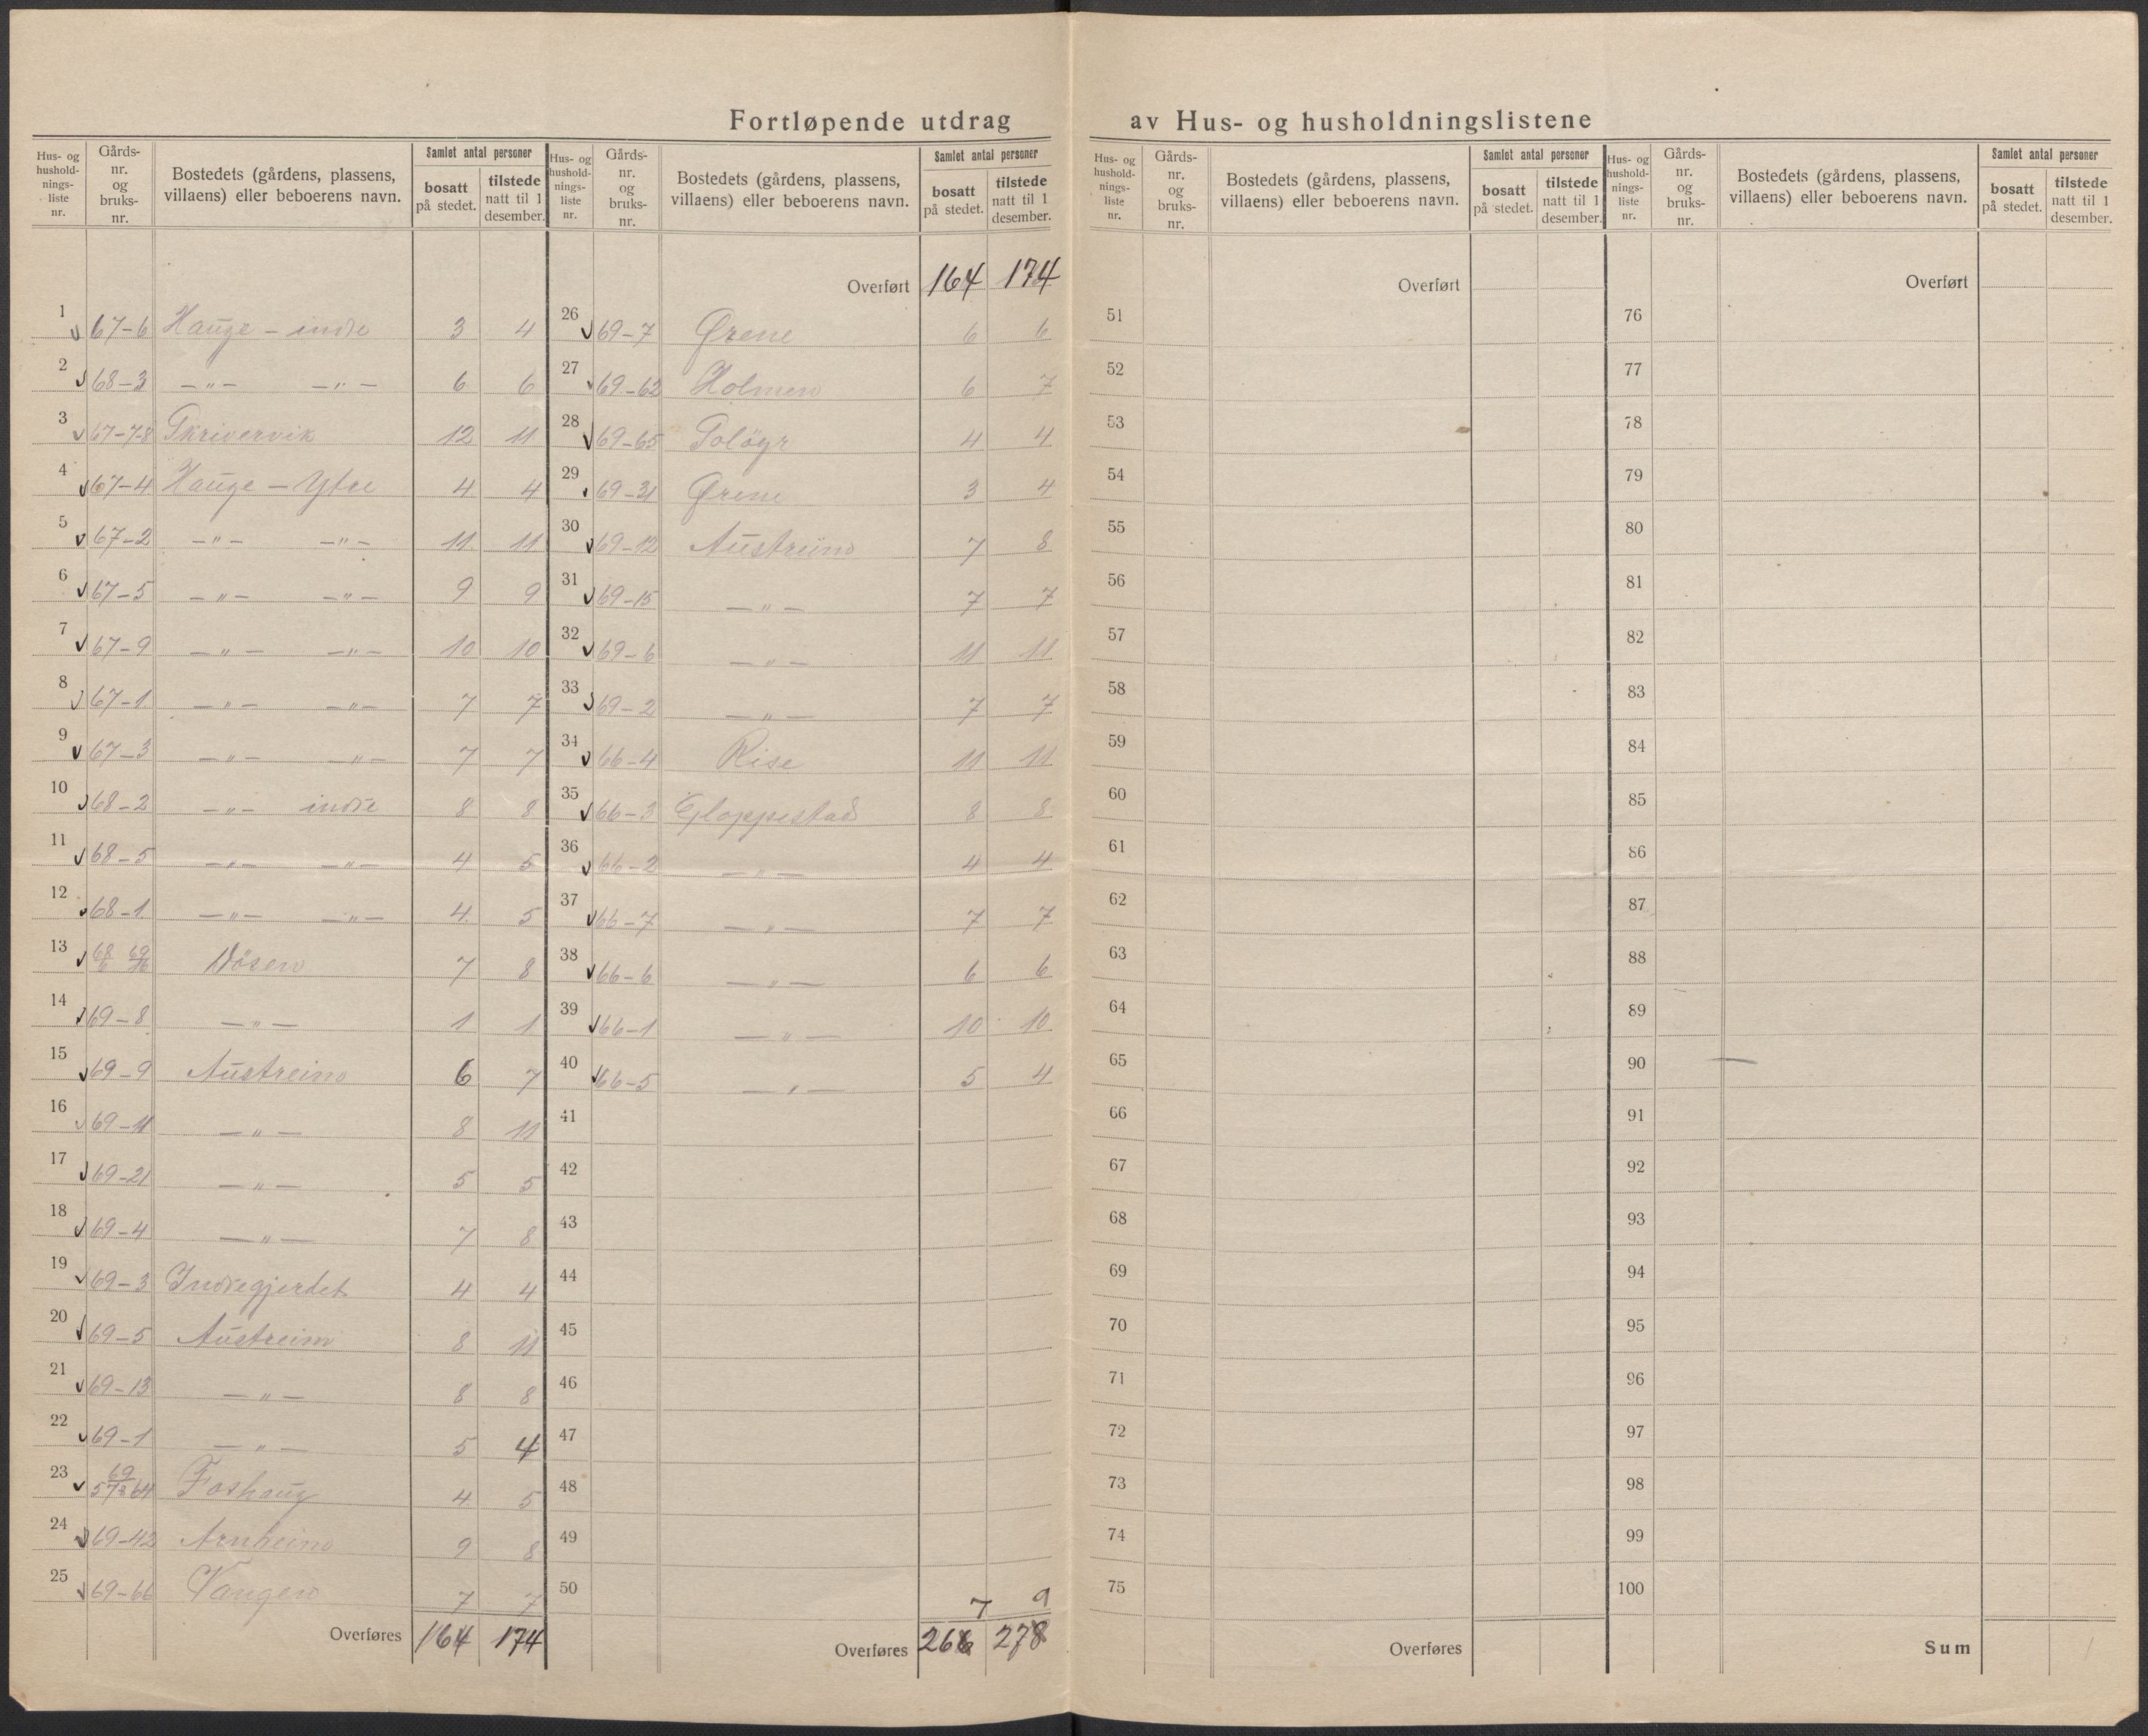 Fortløpende utdrag av Hus- og husholdningslistene
Hus- og husholdnings-liste nr. Gårds-nr. og bruks-nr. Bostedets (gårdens, plassens, villaens) eller beboerens navn. Samlet antal personer bosatt på stedet. tilstede natt til 1 desember.
1 67-6 Hauge - indre 3 4
2 68-3 -"- -"- 6 6
3 67-7-8 Skrivervik 12 11
4 67-4 Hauge - Ytre 4 4
5 67-2 -"- -"- 11 11
6 67-5 -"- -"- 9 9
7 67-9 -"- -"- 10 10
8 67-1 -"- -"- 7 7
9 67-3 -"- -"- 7 7
10 68-2 -"- indre 8 8
11 68-5 -"- -"- 4 5
12 68-1 -"- -"- 4 5
13 68/6 69/16 Vösen 7 8
14 69-8 -"- 1 1
15 69-9 Austreim 6 7
16 69-11 -"- 8 11
17 69-21 -"- 5 5
18 69-4 -"- 7 8
19 69-3 Indregjerdet 4 4
20 69-5 Austreim 8 11
21 69-13 -"- 8 8
22 69-1 -"- 5 4
23 69 64 Foshaug 4 5
24 69-42 Arnheim 9 8
25 69-66 Vangen 7 7
Overføres 164 174
Hus- og husholdnings-liste nr. Gårds-nr. og bruks-nr. Bostedets (gårdens, plassens, villaens) eller beboerens navn. Samlet antal personer bosatt på stedet. tilstede natt til 1 desember.
Overført 164 174
26 69-7 Ørene 6 6
27 69-62 Holmen 6 7
28 69-65 Soløyr 4 4
29 69-31 Ørene 3 4
30 69-12 Austreim 7 8
31 69-15 -"- 7 7
32 69-6 -"- 11 11
33 69-2 -"- 7 7
34 66-4 Rise 11 11
35 66-3 Gloppestad 8 8
36 66-2 -"- 4 4
37 66-7 -"- 7 7
38 66-6 -"- 6 6
39 66-1 -"- 10 10
40 66-5 -"- 5 4
41
42
43
44
45
46
47
48
49
50
7 9
Overføres 266 278
Hus- og husholdnings-liste nr. Gårds-nr. og bruks-nr. Bostedets (gårdens, plassens, villaens) eller beboerens navn. Samlet antal personer bosatt på stedet. tilstede natt til 1 desember.
Overført
51
52
53
54
55
56
57
58
59
60
61
62
63
64
65
66
67
68
69
70
71
72
73
74
75
Overføres
Hus- og husholdnings-liste nr. Gårds-nr. og bruks-nr. Bostedets (gårdens, plassens, villaens) eller beboerens navn. Samlet antal personer bosatt på stedet. tilstede natt til 1 desember.
Overført
76
77
78
79
80
81
82
83
84
85
86
87
88
89
90
91
92
93
94
95
96
97
98
99
100
Sum